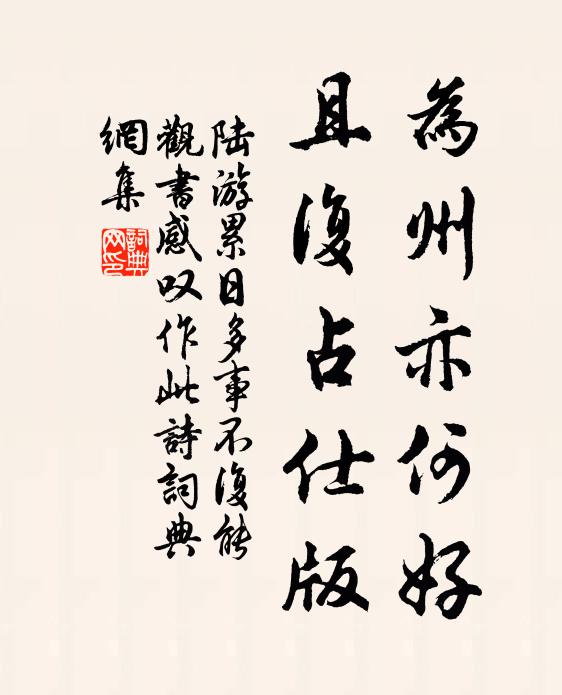 為州亦何好
且復占仕版
陆游累日多事不復能
觀書感叹作此詩詞典
網集
詞典
网印